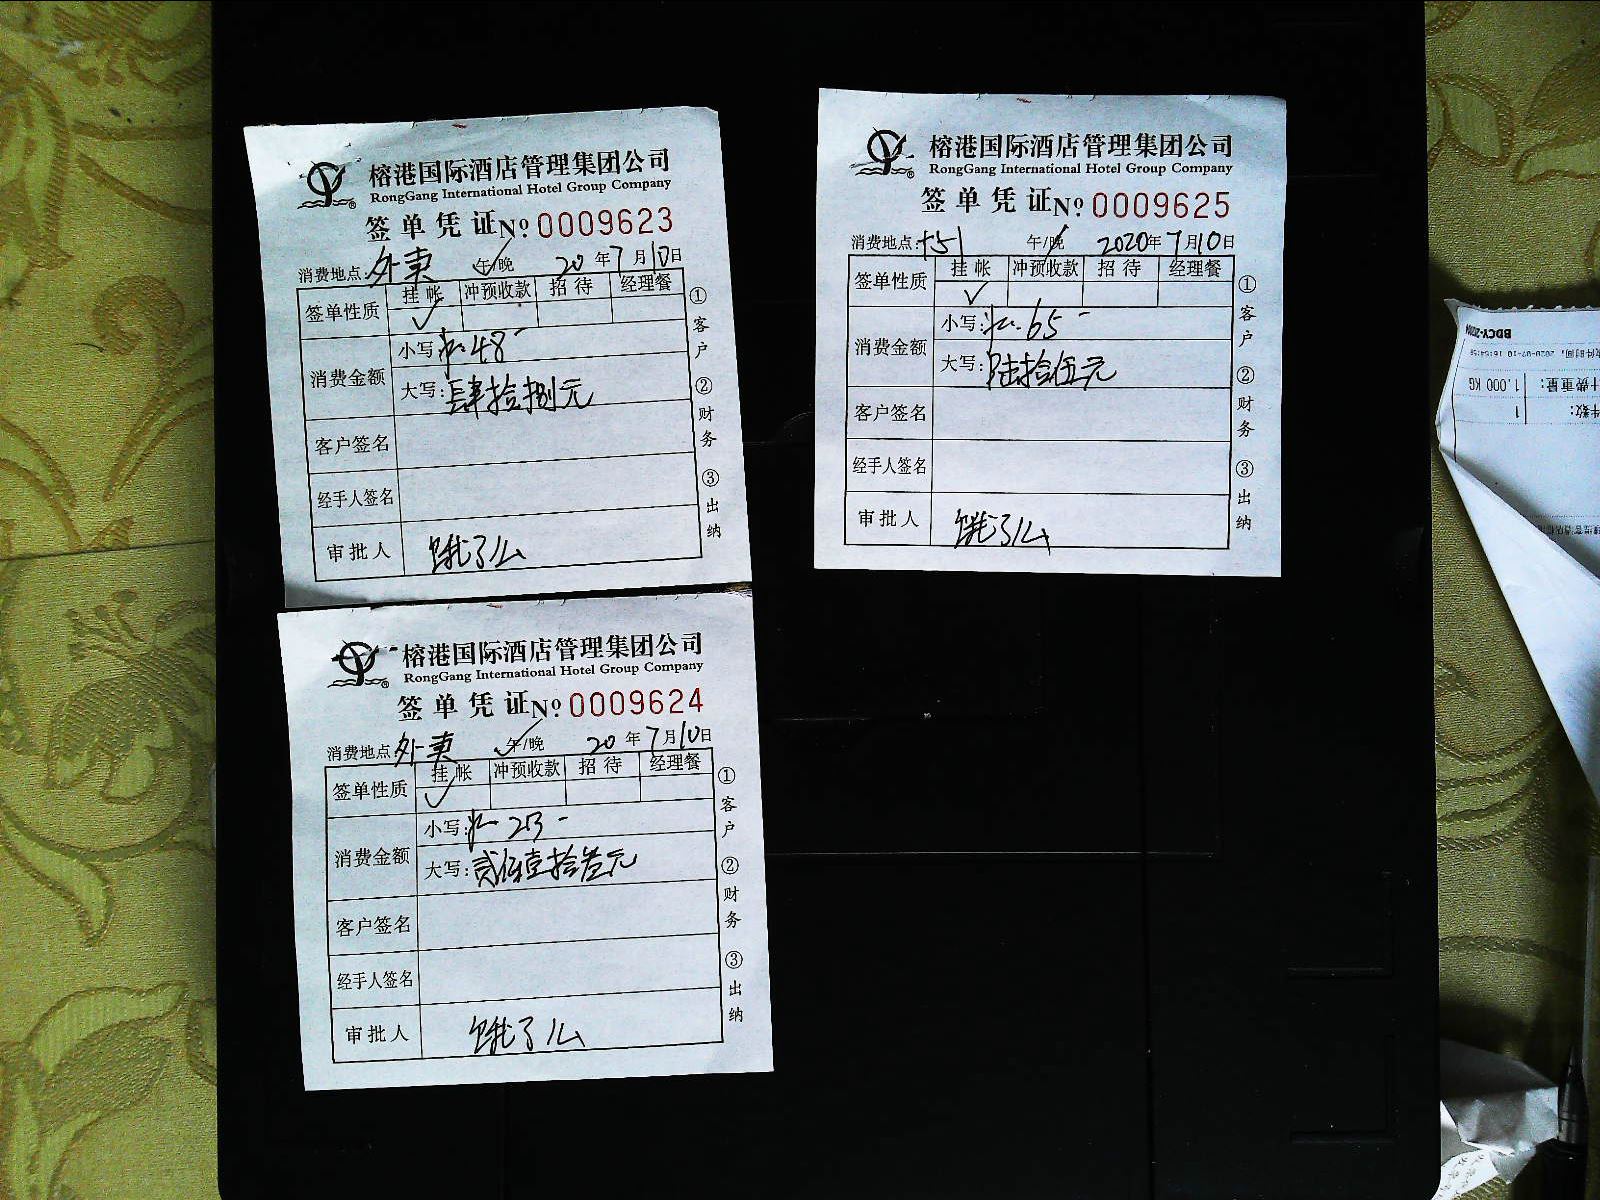 榕港国际酒店管理集团公司
RongGang International Hotel Group Company
签单凭证 №0009623
消费地点:外卖 午/晚 20年7月10日
签单性质 挂帐 冲预收款 招待 经理餐
✓
消费金额 小写: 48-
大写:肆拾捌元
客户签名
经手人签名
审批人 饿了么
①客户 ②财务 ③出纳
榕港国际酒店管理集团公司
RongGang International Hotel Group Company
签单凭证 №0009625
消费地点: 午/晚 2020年7月10日
签单性质 挂帐 冲预收款 招待 经理餐
✓
消费金额 小写: 65-
大写:陆拾伍元
客户签名
经手人签名
审批人 饿了么
①客户 ②财务 ③出纳
榕港国际酒店管理集团公司
RongGang International Hotel Group Company
签单凭证 №0009624
消费地点:外卖 午/晚 20年7月10日
签单性质 挂帐 冲预收款 招待 经理餐
✓
消费金额 小写: 213-
大写:贰佰壹拾叁元
客户签名
经手人签名
审批人 饿了么
①客户 ②财务 ③出纳
件数: 1
计费重量: 1.000 KG
件时间: 2020-07-10 16:54:56